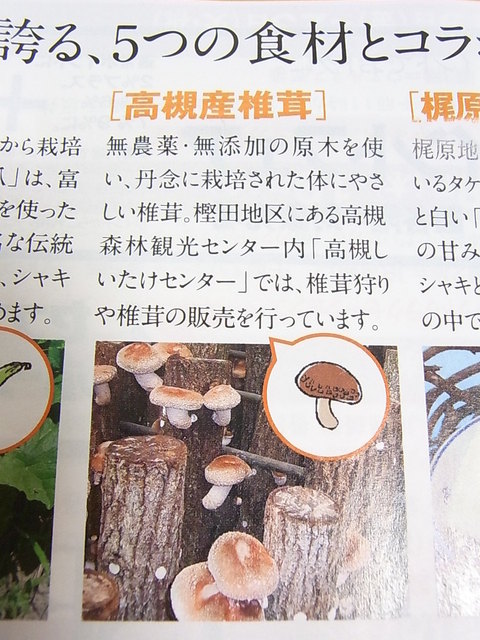 誇る、5つの食材とコラ
から栽培
」は、富
を使った
な伝統
、シャキ
めます。
[高槻産椎茸]
無農薬・無添加の原木を使
い、丹念に栽培された体にやさ
しい椎茸。樫田地区にある高槻
森林観光センター内「高槻し
いたけセンター」では、椎茸狩り
や椎茸の販売を行っています。
[梶原
梶原地
いるタケ
と白い「
の甘み
シャキと
の中で